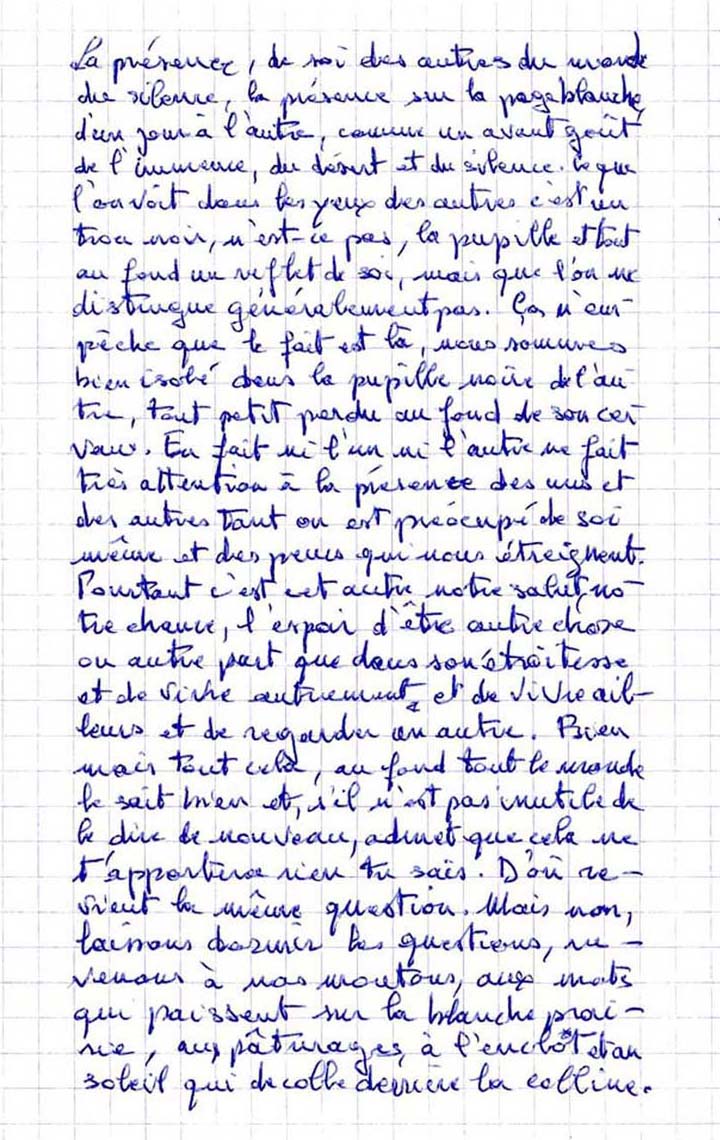 La présence, de soi des autres du monde
du silence, la présence sur la page blanche,
d'un jour à l'autre, comme un avant goût
de l'immense, du désert et du silence. Ce que
l'on voit dans les yeux des autres c'est un
trou noir, n'est-ce pas, la pupille et tout
au fond un reflet de soi, mais que l'on ne
distingue généralement pas. Ça n'em-
pêche que le fait est là, nous sommes
bien isolé dans la pupille noire de l'au-
tre, tout petit perdu au fond de son cer-
veau. En fait ni l'un ni l'autre ne fait
très attention à la présence des uns et
des autres tant on est préocupé de soi
même et des peurs qui nous étreignent.
Pourtant c'est cet autre notre salut, no-
tre chance, l'espoir d'être autre chose
ou autre part que dans son étroitesse
et de vivre autrement, et de vivre ail-
leurs et de regarder un autre. Bien
mais tout cela, au fond tout le monde
le sait bien et, s'il n'est pas inutile de
le dire de nouveau, admet que cela ne
t'apportera rien tu sais. D'où re-
vient la même question. Mais non,
laissons dormir les questions, re-
venons à nos moutons, aux mots
qui paissent sur la blanche prai-
rie, aux pâturages, à l'enclôt et au
soleil qui decolle derrière la colline.